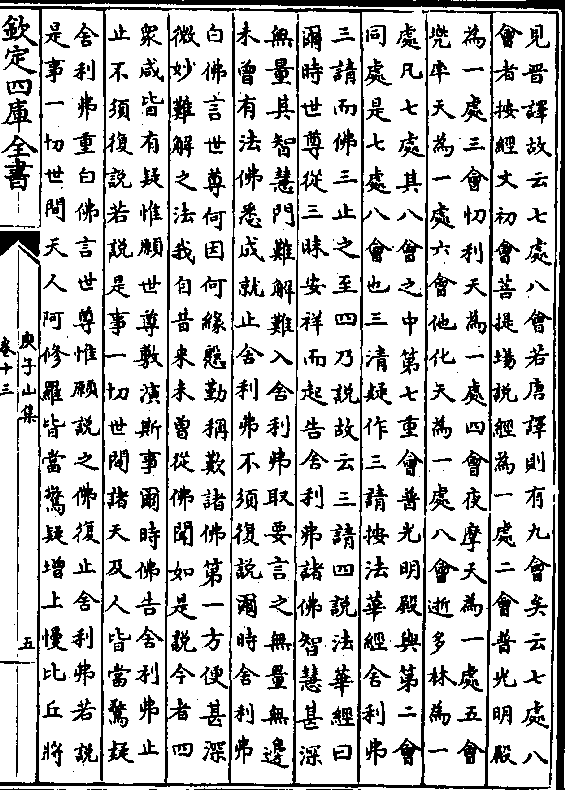 見晉譯故云七處八會若唐譯則有九會矣云七處八
會者按經文初會菩提場說經為一處二會普光明殿
為一處三會忉利天為一處四會夜摩天為一處五會
兜率天為一處六會他化天為一處八會逝多林為一
處凡七處其八會之中第七重會普光明殿與第二會
同處是七處八會也三清疑作三請按法華經舍利弗
三請而佛三止之至四乃說故云三請四說法華經曰
爾時世尊從三昧安祥而起告舍利弗諸佛智慧甚深
無量其智慧門難解難入舍利弗取要言之無量無邊
未曾有法佛悉成就止舍利弗不須復說爾時舍利弗
白佛言世尊何因何緣慇勤稱歎諸佛第一方便甚深
微妙難解之法我自昔來未曾從佛聞如是說今者四
衆咸皆有疑惟願世尊敷演斯事爾時佛告舍利弗止
止不須復說若說是事一切世間諸天及人皆當驚疑
舍利弗重白佛言世尊惟願說之佛復止舍利弗若說
是事一切世間天人阿修羅皆當驚疑增上慢比丘將
欽定四庫全書
庾子山集
卷十三
五